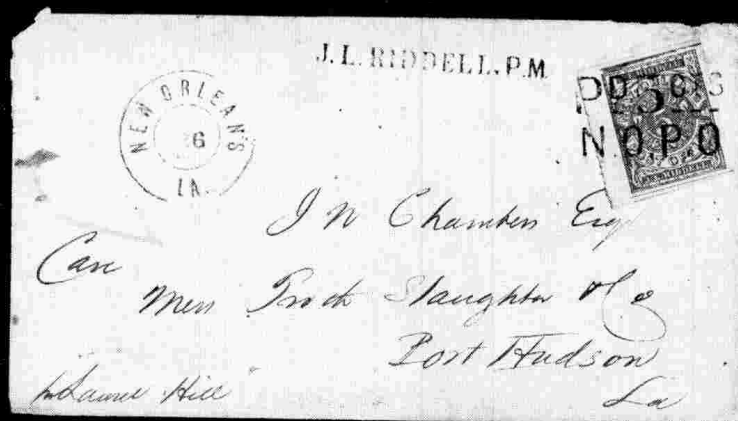 J. L. RIDDELL, P.M.
NEW ORLEANS
26
LA.
PD 5 CTS
N.O.P.O
J N Chambers Esq
Care
Mess Slaughter & Co
Port Hudson
La
Laurel Hill